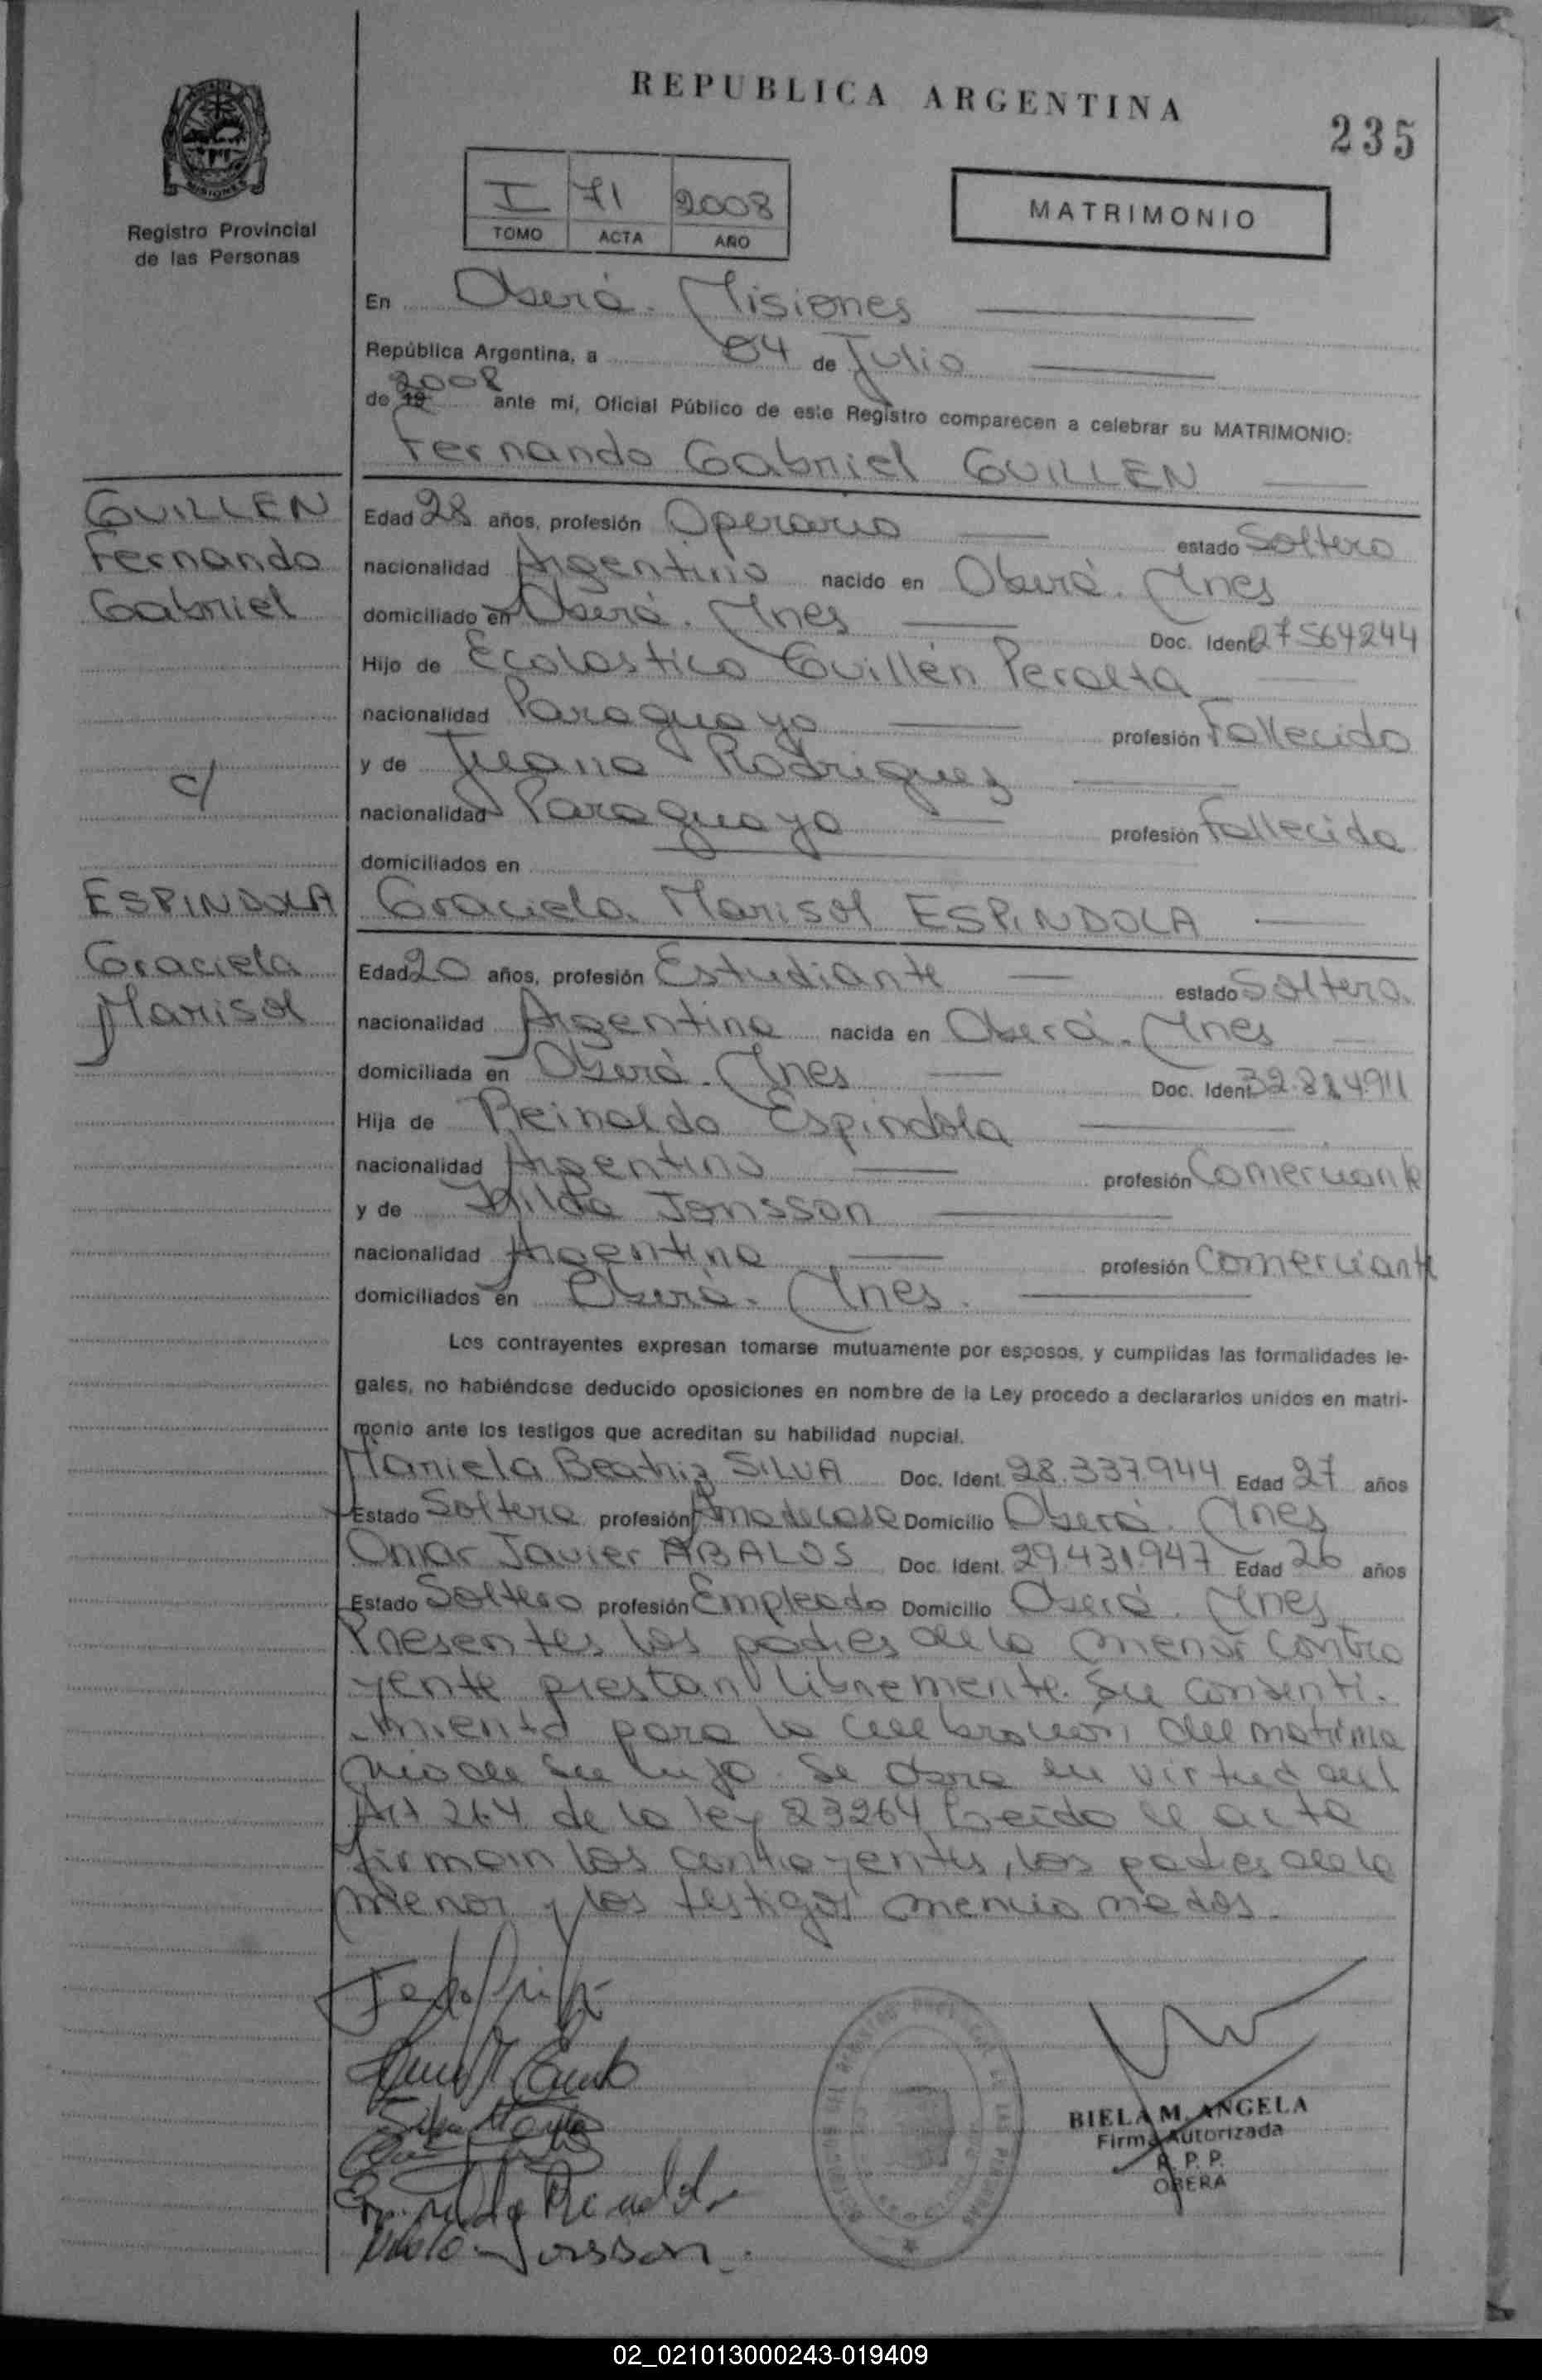 REPUBLICA ARGENTINA
235
MISIONES
Registro Provincial
de las Personas
I 71 2008
TOMO ACTA AÑO
MATRIMONIO
En Oberá. Misiones
República Argentina, a 04 de Julio
de 19 2008 ante mi, Oficial Público de este Registro comparecen a celebrar su MATRIMONIO:
Fernando Gabriel GUILLEN
GUILLEN
Fernando
Gabriel
c/
ESPINDOLA
Graciela
Marisol
Edad 28 años, profesión Operario estado Soltero
nacionalidad Argentino nacido en Oberá. Mnes
domiciliado en Oberá. Mnes Doc. Ident 27564244
Hijo de Ecolastico Guillén Peralta
nacionalidad Paraguayo profesión Fallecido
y de Juana Rodriguez
nacionalidad Paraguaya profesión Fallecida
domiciliados en
Graciela Marisol ESPINDOLA
Edad 20 años, profesión Estudiante estado Soltera
nacionalidad Argentina nacida en Oberá. Mnes
domiciliada en Oberá. Mnes Doc. Ident
Hija de Reinaldo Espindola
nacionalidad Argentino profesión Comerciante
y de Hilda Jonsson
nacionalidad Argentina profesión Comerciante
domiciliados en Oberá. Mnes.
Los contrayentes expresan tomarse mutuamente por esposos, y cumplidas las formalidades le-
gales, no habiéndose deducido oposiciones en nombre de la Ley procedo a declararlos unidos en matri-
monio ante los testigos que acreditan su habilidad nupcial.
Mariela Beatriz SILVA Doc. Ident. 28.337.944 Edad 27 años
Estado Soltera profesión Ama de casa Domicilio Oberá. Mnes
Omar Javier ABALOS Doc. Ident. 29.431.947 Edad 26 años
Estado Soltero profesión Empleado Domicilio Oberá. Mnes
Presentes los padres de la menor contra
yente prestan libremente su consenti.
miento para la celebración del matrimo
nio de su hija. Se obra en virtud del
Art 264 de la ley 23264 Leído el acta
firman los contrayentes, los padres de la
menor y los testigos mencionados.
BIELA M. ANGELA
Firma Autorizada
R. P. P.
OBERA
02_021013000243-019409